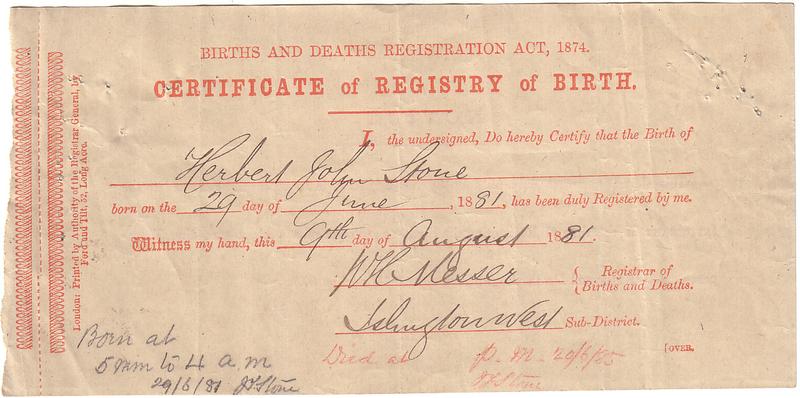 BIRTHS AND DEATHS REGISTRATION ACT, 1874.
CERTIFICATE of REGISTRY of BIRTH.
I, the undersigned, Do hereby Certify that the Birth of
Herbert John Stone
born on the 29 day of June, 1881, has been duly Registered by me.
Witness my hand, this 9th day of August 1881.
WH Messer { Registrar of
Births and Deaths.
Islington West Sub-District.
[OVER.
Born at
5 mm to 4 a m
29/6/81 J Stone
Died at P. M - 29/6/85
Stone
London: Printed by Authority of the Registrar General, by
Ford and Tilt 52, Long Acre.